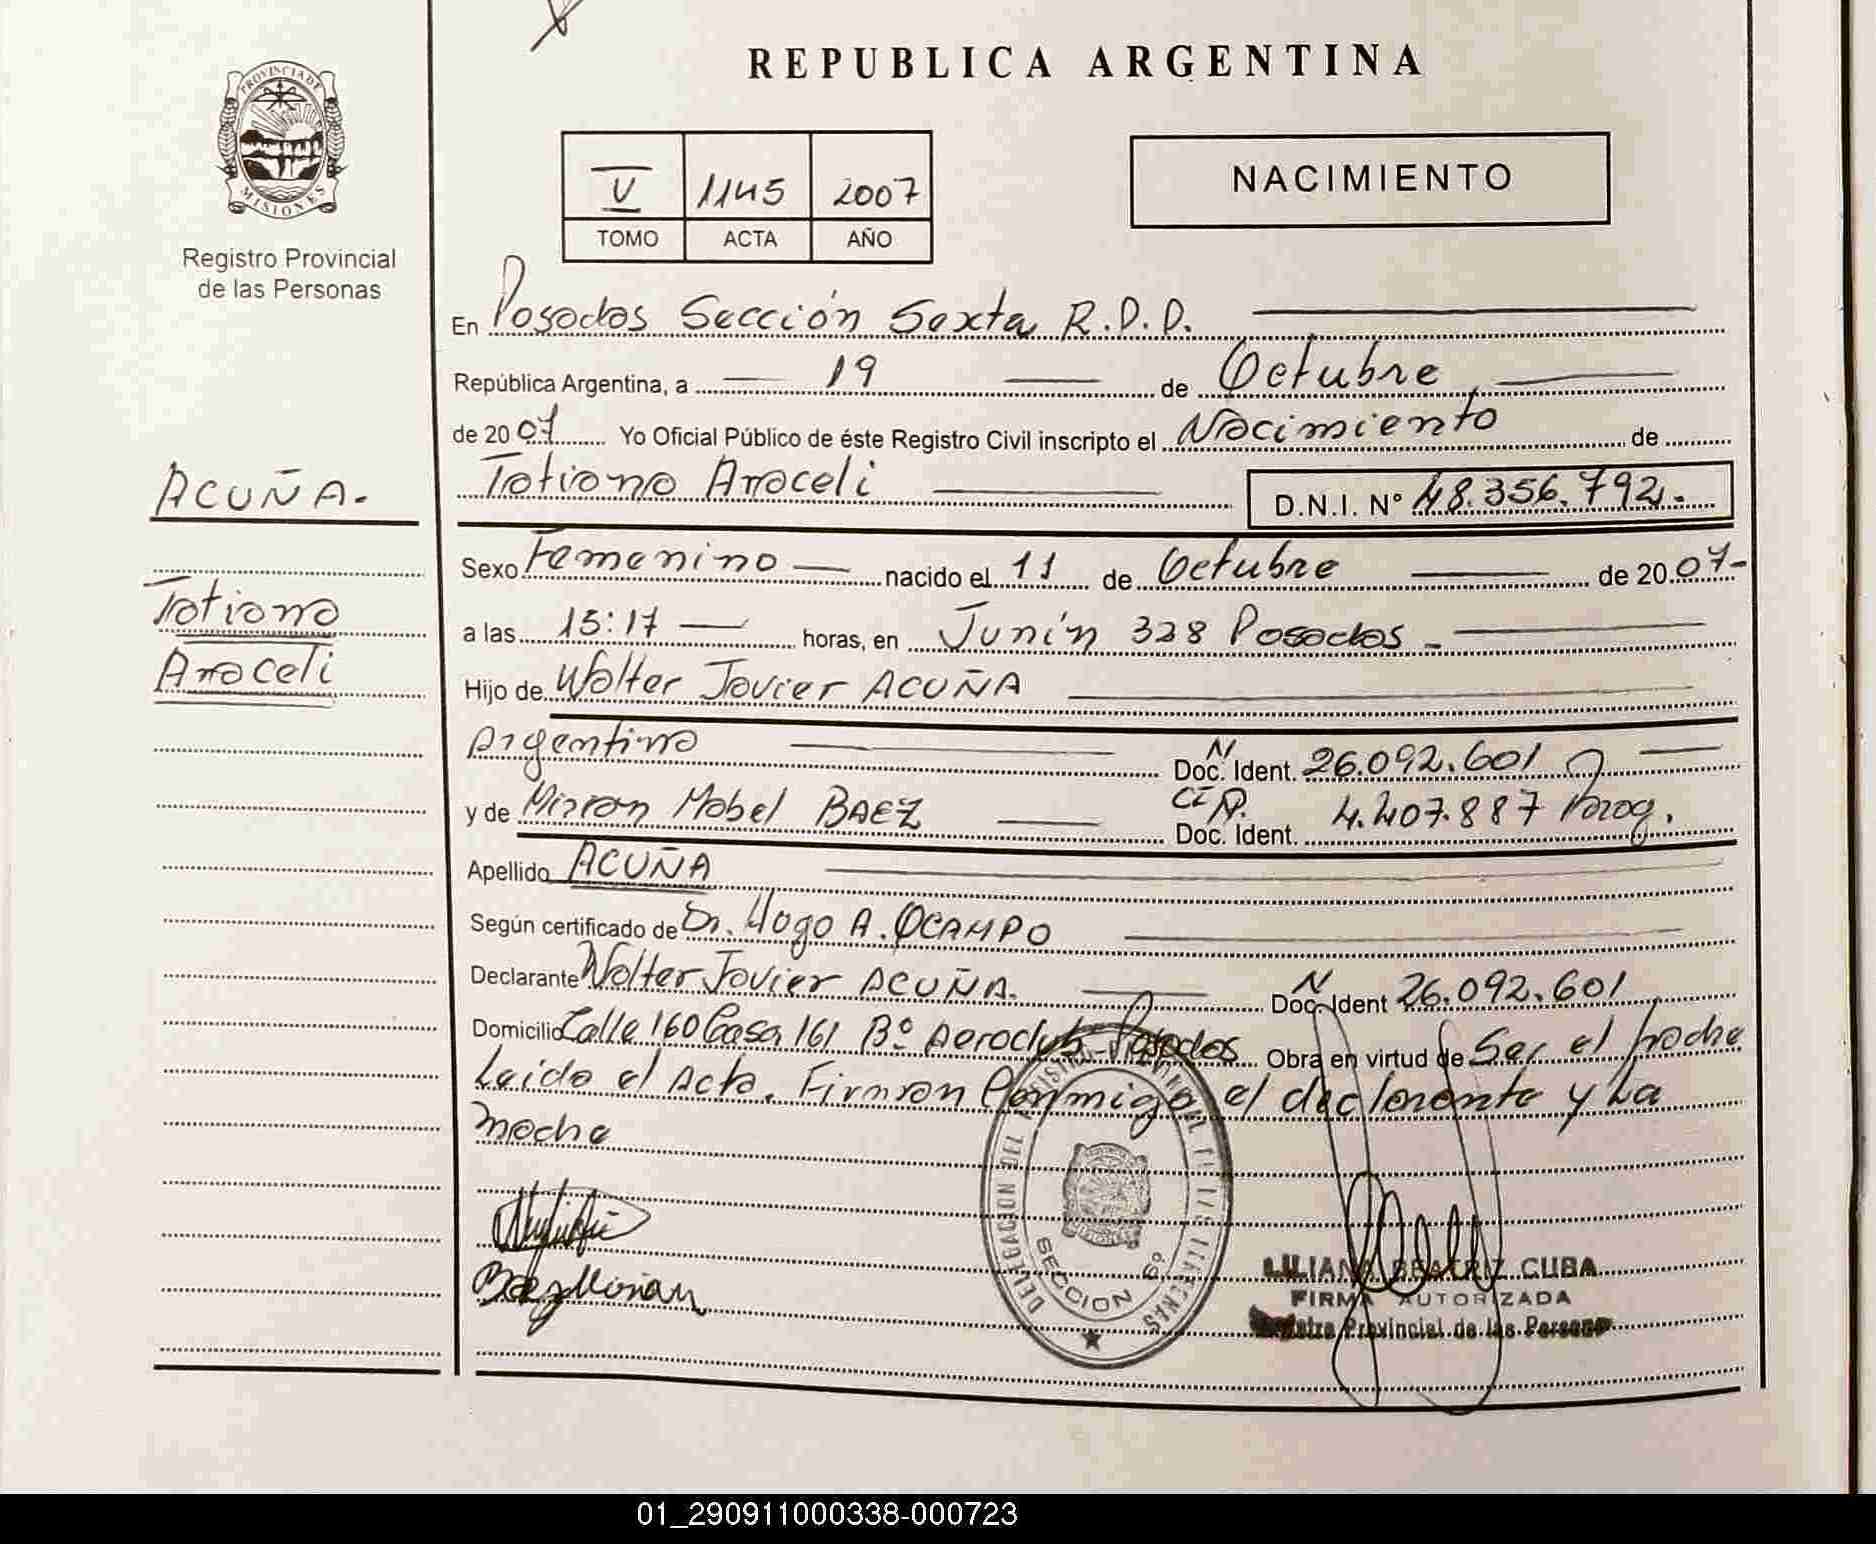 REPUBLICA ARGENTINA
PROVINCIA DE
MISIONES
Registro Provincial
de las Personas
V 1145 2007
TOMO ACTA AÑO
NACIMIENTO
En Posadas Sección Sexta R.P.P.
República Argentina, a 19 de Octubre
de 2007 Yo Oficial Público de éste Registro Civil inscripto el Nacimiento de
ACUÑA.
Tatiana Araceli D.N.I. Nº 48.356.792.-
Sexo Femenino nacido el 11 de Octubre de 2007-
Tatiana
Araceli
a las 15:17 horas, en Junín 328 Posadas -
Hijo de Walter Javier ACUÑA
Argentina Doc. Ident. N 26.092.601
y de Mirian Mabel BAEZ Doc. Ident. 4.407.887 Parag.
Apellido ACUÑA
Según certificado de Dr. Hugo A. OCAMPO
Declarante Walter Javier ACUÑA. Doc. Ident N 26.092.601
Domicilio Calle 160 Casa 161 Bº Aeroclub Posadas Obra en virtud de Ser el padre
Leida el Acta. Firman Conmigo el declarante y La
madre
Baez Mirian
DELEGACION DEL REGISTRO PROVINCIAL DE LAS PERSONAS
SECCION 6º
LILIANA BEATRIZ CUBA
FIRMA AUTORIZADA
Registro Provincial de las Personas
01_290911000338-000723